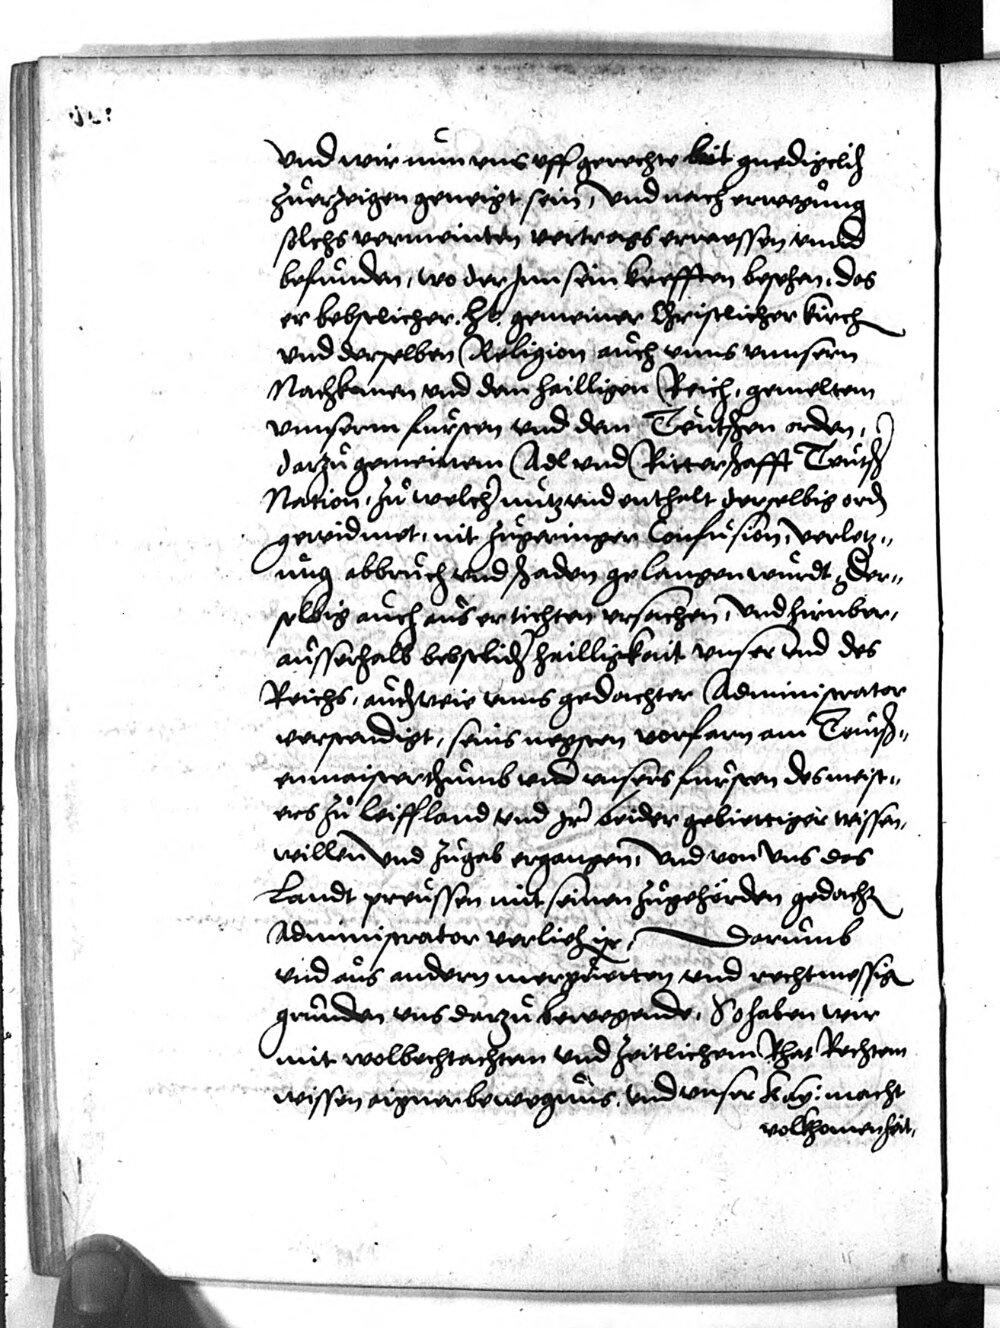 Und wir nun uns uff gerechte bit gnediglich
zuerzeigen geneigt sein, Und nach erwegung
solchs vermeinten vertrags ermessen unnd
befunden, wo der Inn sein krefften besehen, das
er bebstlicher. Ht. gemeiner Christlicher kirch
und derselben Religion auch unns unnsern
Nachkomen und dem hailligen Reich, gemeltem
unnserm fursten und dem Teutschen orden,
darzu gemeinem Adl und Ritterschafft Teutsch
Nation, zu welch nutz und enthalt derselbig ord
gewidmet, nit zugeringer Confusion, verletz„
ung abbruch und schaden gelangen wurdt, Der„
selbig auch aus ertichten ursachen, Und hinuber,
ausserhalb bebstlich hailligkait unser und des
Reichs, auch wie unns gedachter Administrator
verstendigt, seins negsten vorfarn am Teutsch„
enmaisterthumb und unsers fursten des meist„
ers zu Leiffland und Ir beider gebiettiger wissen,
willen Und zugab ergangen, Und von Uns das
Landt preussen mit seinen zugehörden gedacht
Administrator verlieh ist, Darumb
und aus andern mergkveitten und rechtmessig
grunden uns darzu bewegende, So haben wir
mit wolbechtachtem und zeitlichem Rhat Rechtem
wissen aigner bewegnus, und unser kay: macht
volkhomenheit,